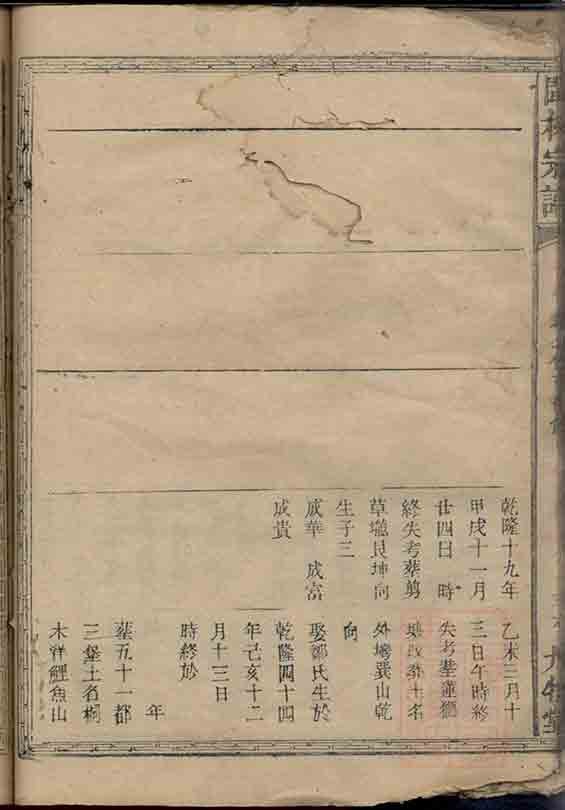 宗譜
乾隆十九年
甲戌十一月
廿四日 時
終失考葬剪
草壠艮坤向
生子三
成華 成富
成貴
乙未三月十
三日午時終
失考葬蓮
名
外塆巽山乾
向
娶鄭氏生於
乾隆四十四
年己亥十二
月十三日
時終於
年
葬五十一都
三堡土名桐
木洋鯉魚山